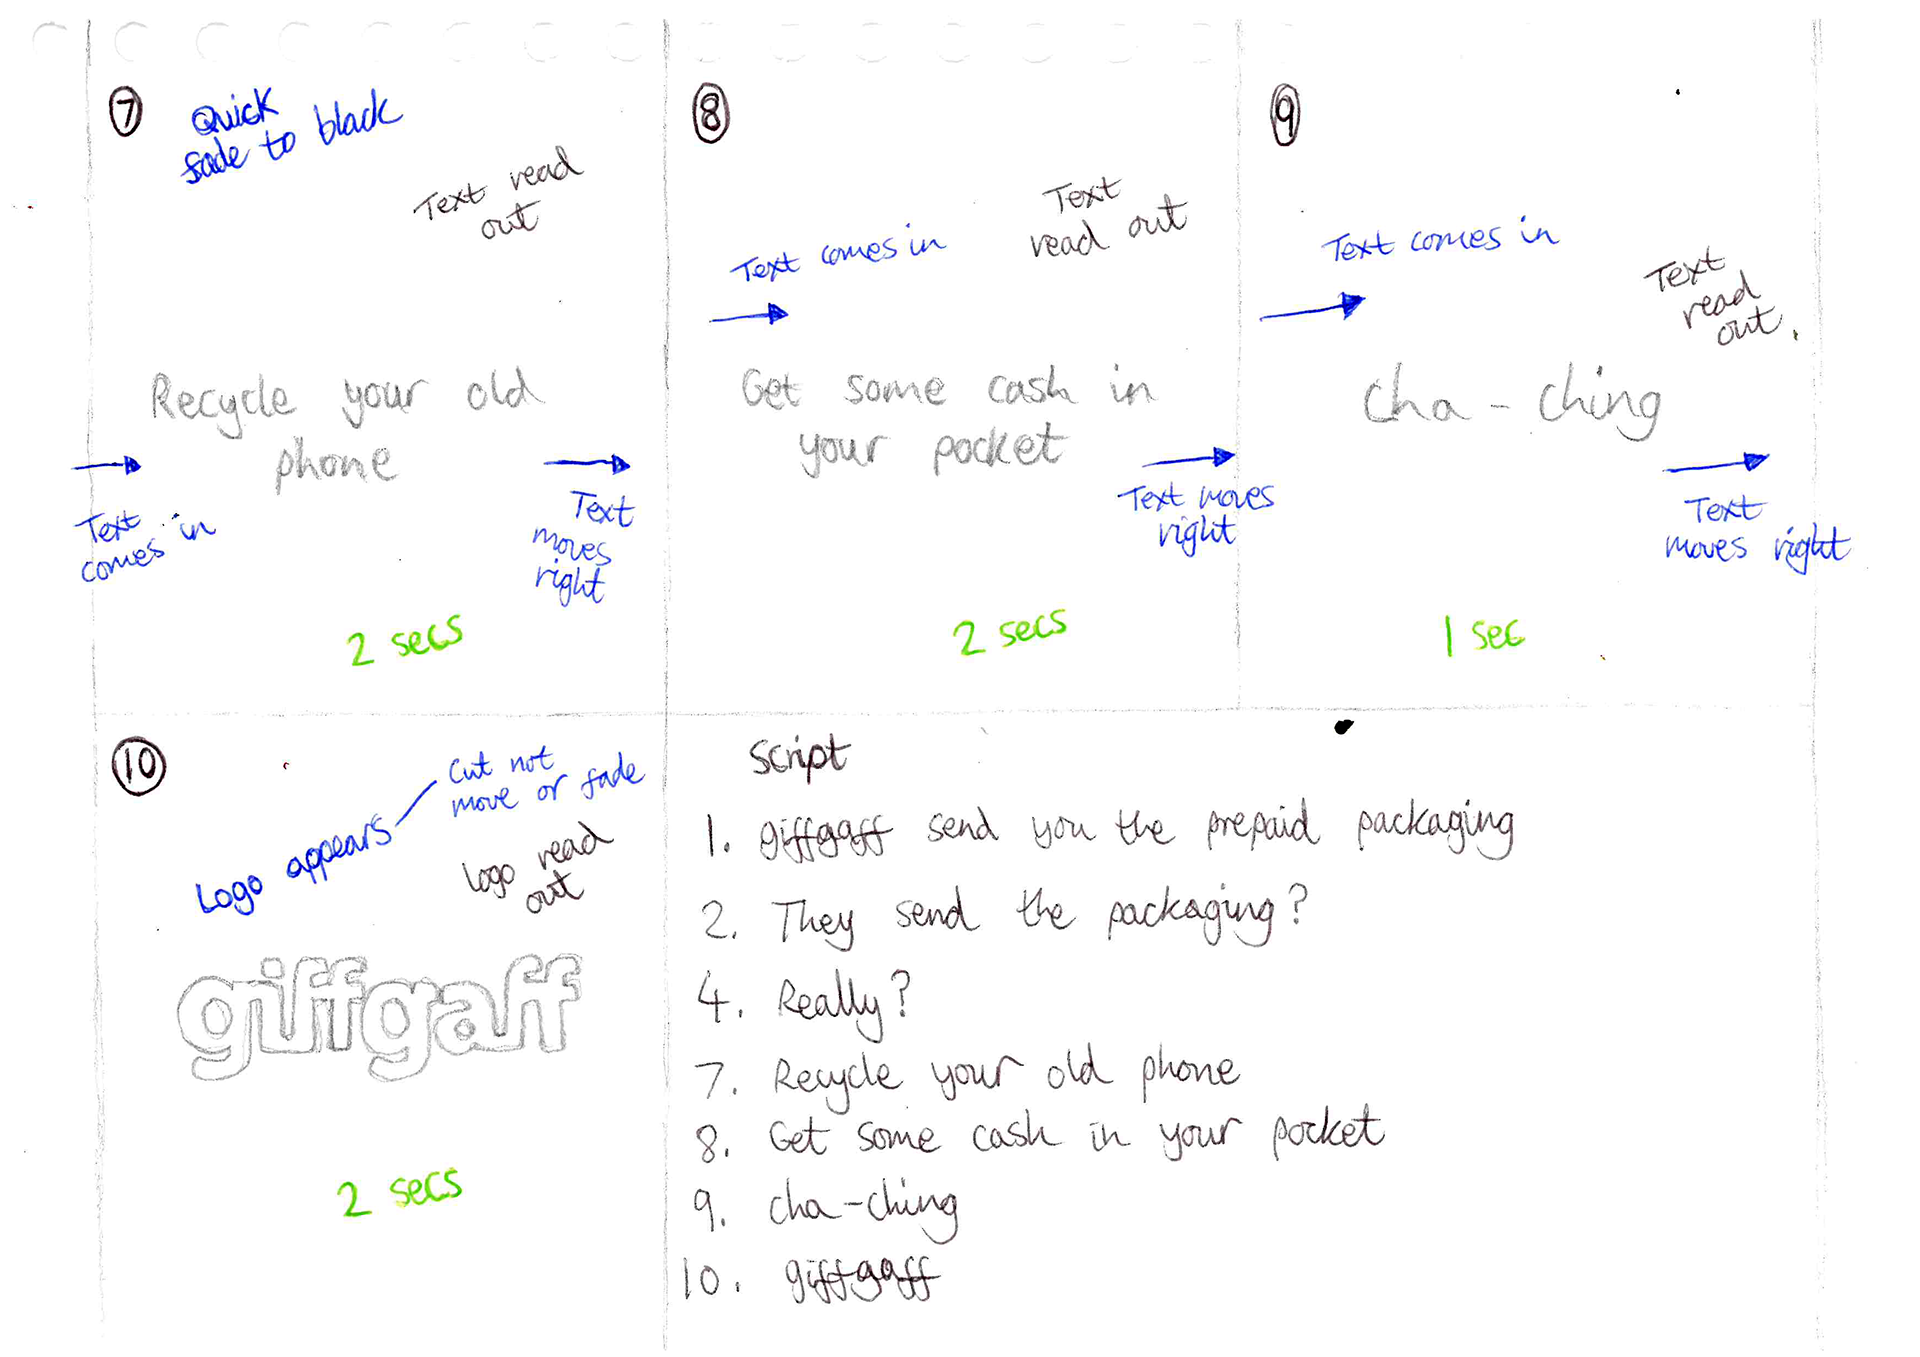 7
Quick
fade to black
Text read
out
Recycle your old
phone
Text
comes in
Text
moves
right
2 secs
8
Text comes in
Text
read out
Get some cash in
your pocket
Text moves
right
2 secs
9
Text comes in
Text
read
out.
cha-ching
Text
moves right
1 sec
10
Logo appears
Cut not
move or fade
Logo read
out
giffgaff
2 secs
Script
1. giffgaff send you the prepaid packaging
2. They send the packaging?
4. Really?
7. Recycle your old phone
8. Get some cash in your pocket
9. cha-ching
10. giffgaff